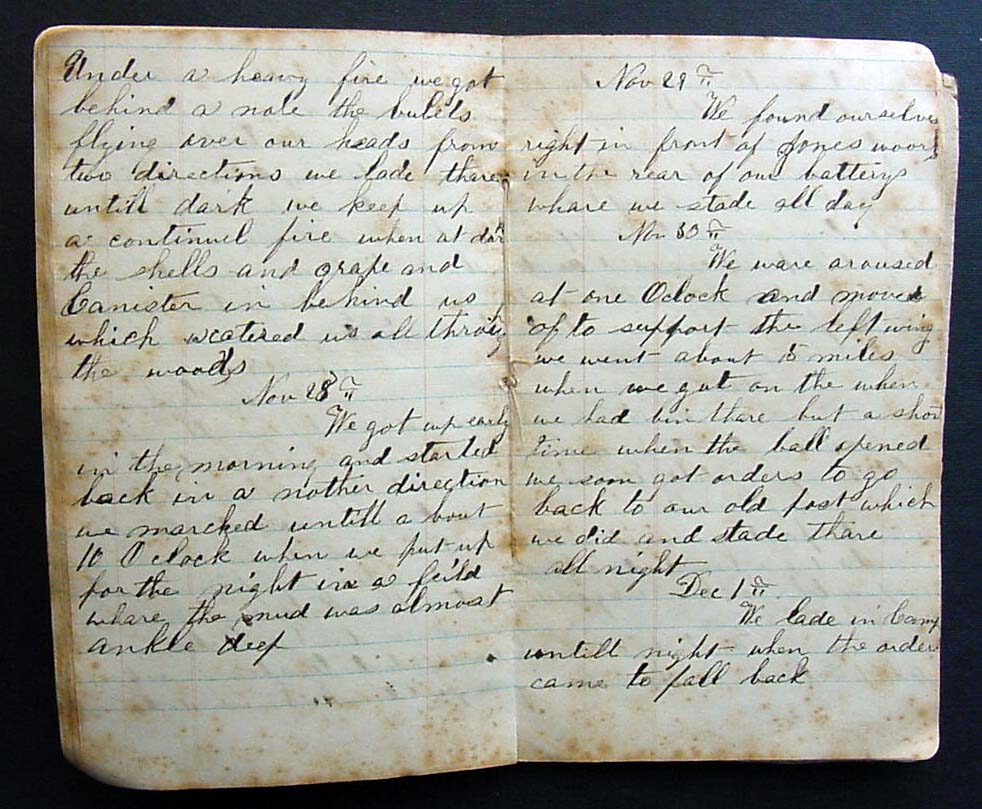 Under a heavy fire we got
behind a nole the bulets
flying over our heads from
two directions we lade there
untill dark we keep up
a continuel fire when at dark
the shells and grape and
Canister in behind us
which scatered us all through
the woods
Nov 28th
We got up early
in the morning and started
back in a nother direction
we marched untill a bout
10 Oclock when we put up
for the night in a feild
whare the mud was almost
ankle deep
Nov 29th
We found ourselves
right in front of Jones woods
in the rear of our batterys
whare we stade all day
Nov 30th
We ware aroused
at one Oclock and moved
of to support the left wing
we went about 5 miles
when we gut on the when
we had bin thare but a short
time when the ball opened
we soon got orders to go
back to our old post which
we did and stade thare
all night
Dec 1th
We lade in Camp
untill night when the order
came to fall back